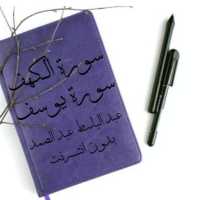 سورة الكهف
سورة يوسف
عبد الباسط عبد الصمد
بدون انترنت